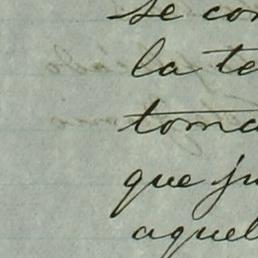 se con
la te
toma
que ju
aquel